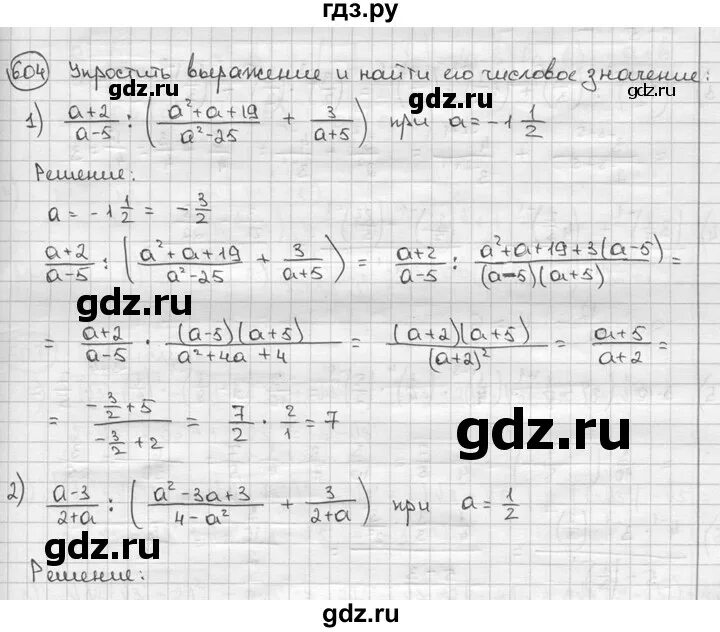 гдз.ру
604 Упростить выражение и найти его числовое значение:
gdz.ru gdz.ru gdz.ru
1) (a+2)/(a-5) : ((a²+a+19)/(a²-25) + 3/(a+5)) при a = -1 1/2
Решение:
a = -1 1/2 = -3/2
(a+2)/(a-5) : ((a²+a+19)/(a²-25) + 3/(a+5)) = (a+2)/(a-5) : (a²+a+19+3(a-5))/((a-5)(a+5)) =
gdz.ru gdz.ru
= (a+2)/(a-5) · ((a-5)(a+5))/(a²+4a+4) = ((a+2)(a+5))/(a+2)² = (a+5)/(a+2) =
= (-3/2+5)/(-3/2+2) = 7/2 · 2/1 = 7
gdz.ru
2) (a-3)/(2+a) : ((a²-3a+3)/(4-a²) + 3/(2+a)) при a = 1/2
gdz.ru gdz.ru
Решение:
gdz.ru